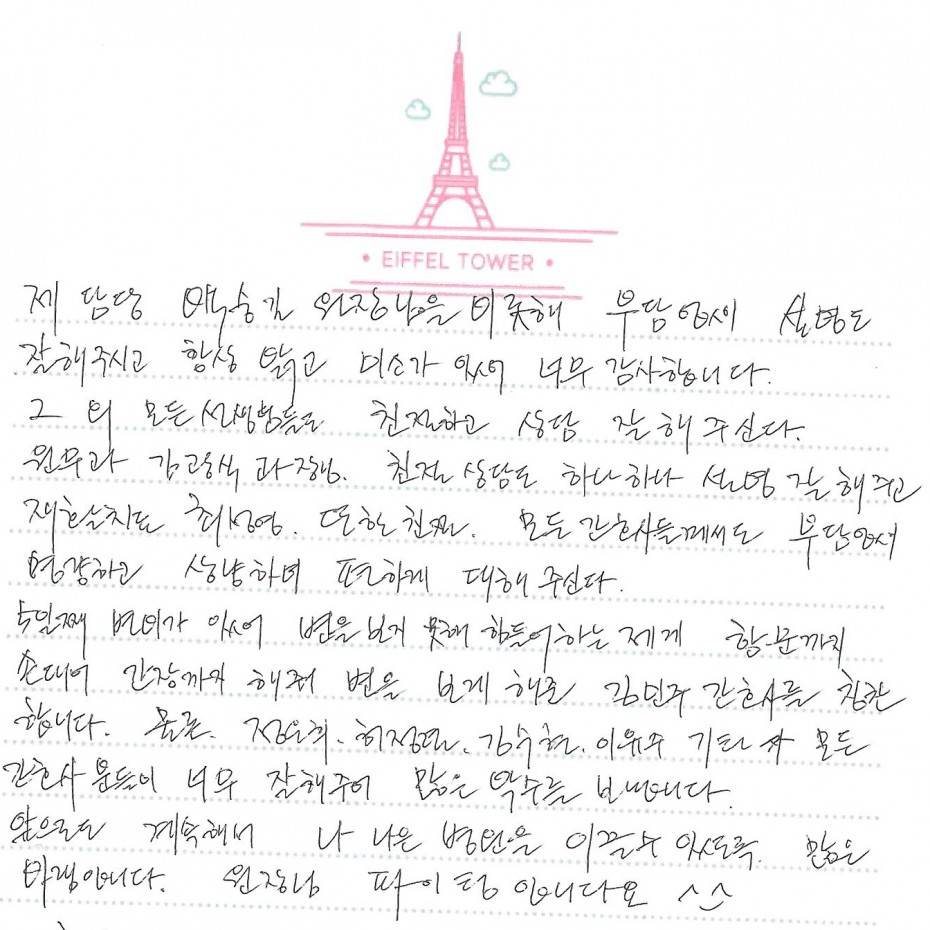 • EIFFEL TOWER •
제 담당 박승길 원장님을 비롯해 부담없이 설명도
잘해주시고 항상 밝고 미소가 있어 너무 감사합니다.
그 외 모든 선생님들도 친절하고 상담 잘 해 주신다.
원무과 김고충식 과장님. 친절 상담도 하나하나 설명 잘 해 주고
재활치료 최성영. 또한 친절. 모든 간호사들께서도 부담없이
명랑하고 상냥하며 편하게 대해 주신다.
5일째 변비가 있어 변을 보지 못해 힘들어하는 제게 항문까지
손대어 관장까지 해줘 변을 보게 해준 김민주 간호사를 칭찬
합니다. 물론. 정은희. 허정련. 김수현. 이유주 기타 모든
간호사 분들이 너무 잘해주어 많은 박수를 보냅니다.
앞으로도 계속해서 더 나은 병원을 이끌수 있도록. 많은
바램입니다. 원장님 파이팅 입니다요 ^^